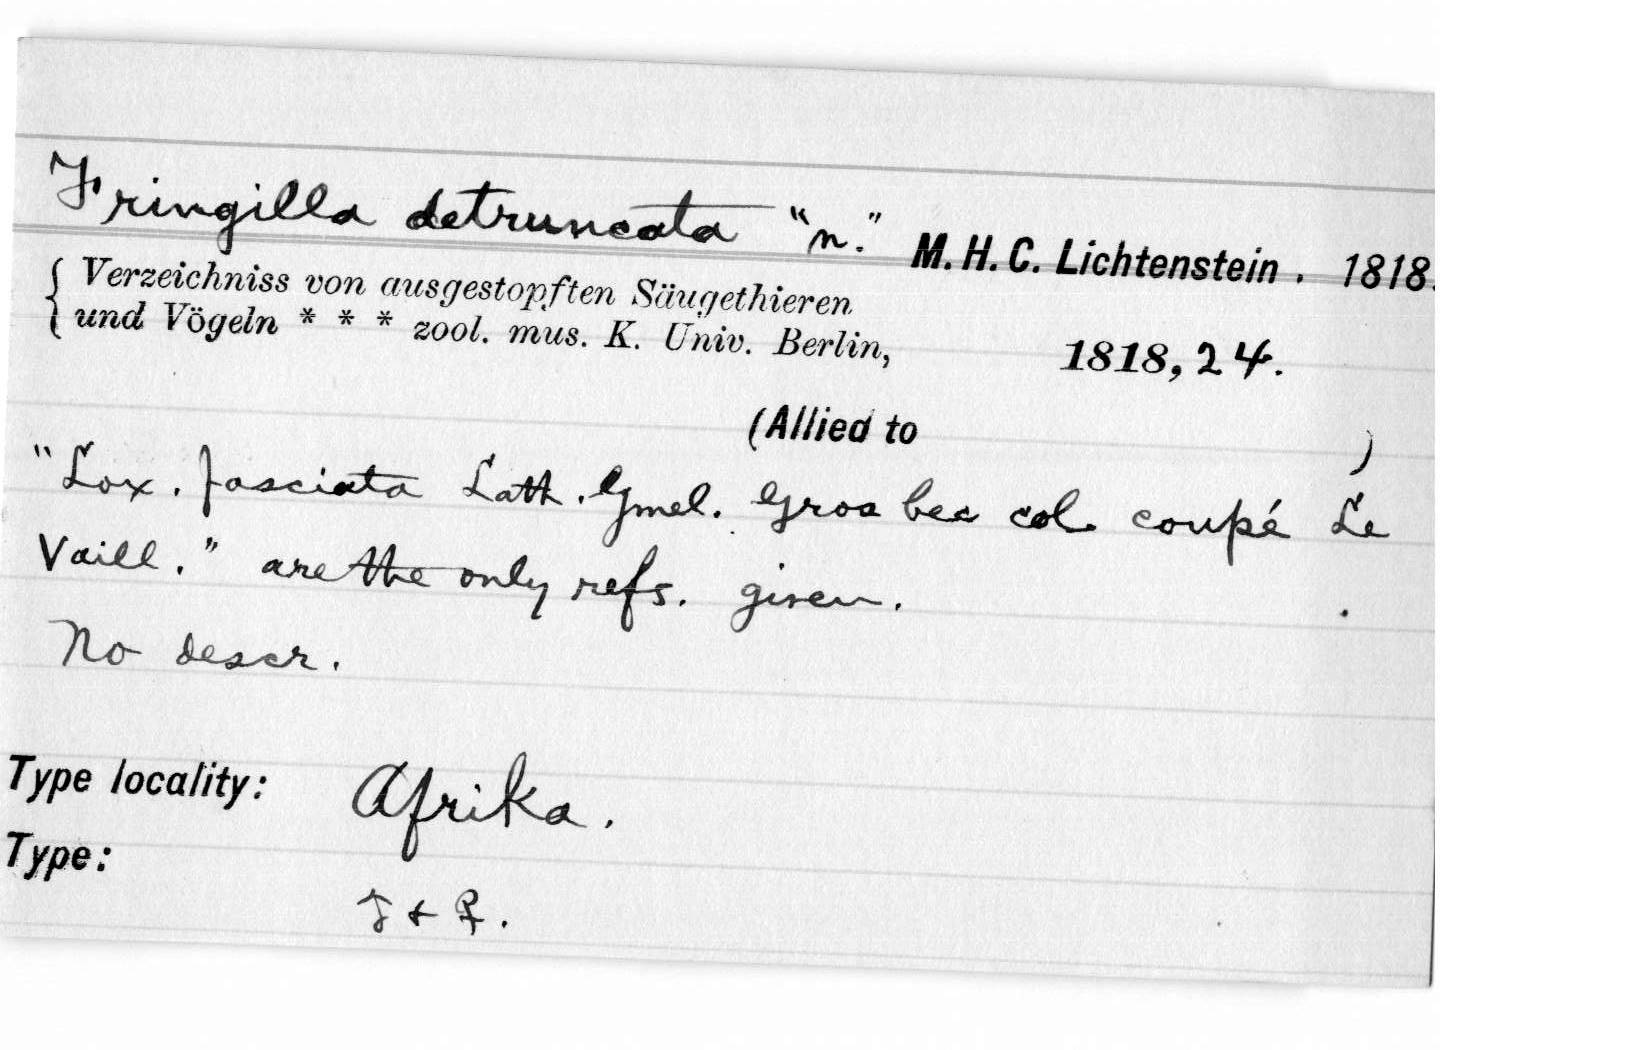 Fringilla detruncata "n." M. H. C. Lichtenstein. 1818.
{ Verzeichniss von ausgestopften Säugethieren
und Vögeln * * * zool. mus. K. Univ. Berlin, 1818, 24.
(Allied to )
"Lox. fasciata Lath. Gmel. Gros bec col coupé Le
Vaill." are the only refs. given.
No descr.
Type locality: Afrika.
Type:
♂ + ♀.